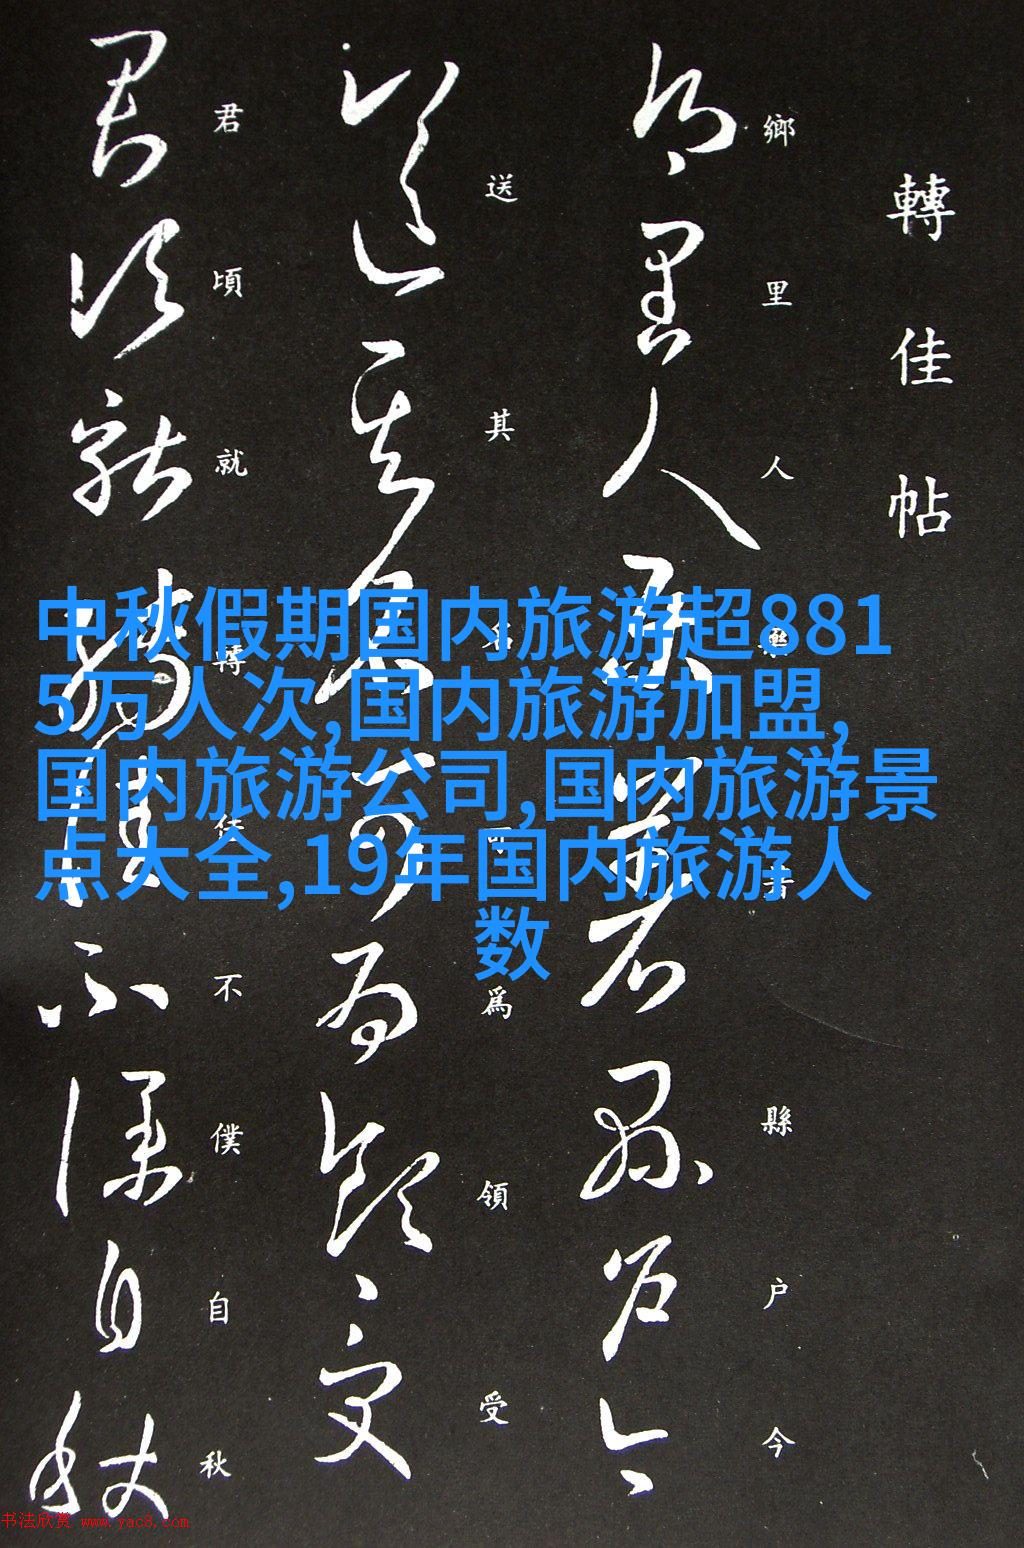 轉佳帖
鄉里人樂著縣户今
送其名可爲領受
君頃就轉佳不僕自秋
中秋假期国内旅游超881
5万人次,国内旅游加盟,
国内旅游公司,国内旅游景
点大全,19年国内旅游人
数
书法欣赏 www.yac8.com